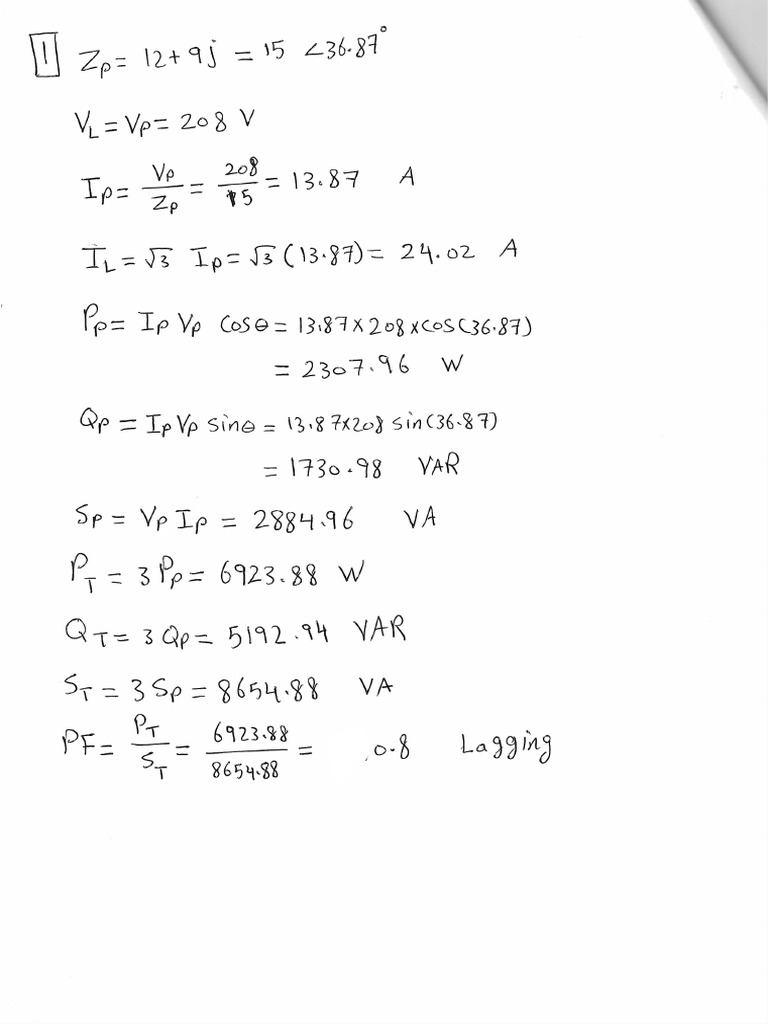 1 Zp = 12 + 9j = 15 ∠36.87°
VL = Vp = 208 V
Ip = Vp/Zp = 208/15 = 13.87 A
IL = √3 Ip = √3 (13.87) = 24.02 A
Pp = Ip Vp cosθ = 13.87 × 208 × cos(36.87)
= 2307.96 W
Qp = Ip Vp sinθ = 13.87×208 sin(36.87)
= 1730.98 VAR
Sp = Vp Ip = 2884.96 VA
PT = 3 Pp = 6923.88 W
QT = 3 Qp = 5192.94 VAR
ST = 3 Sp = 8654.88 VA
PF = PT/ST = 6923.88/8654.88 = 0.8 Lagging